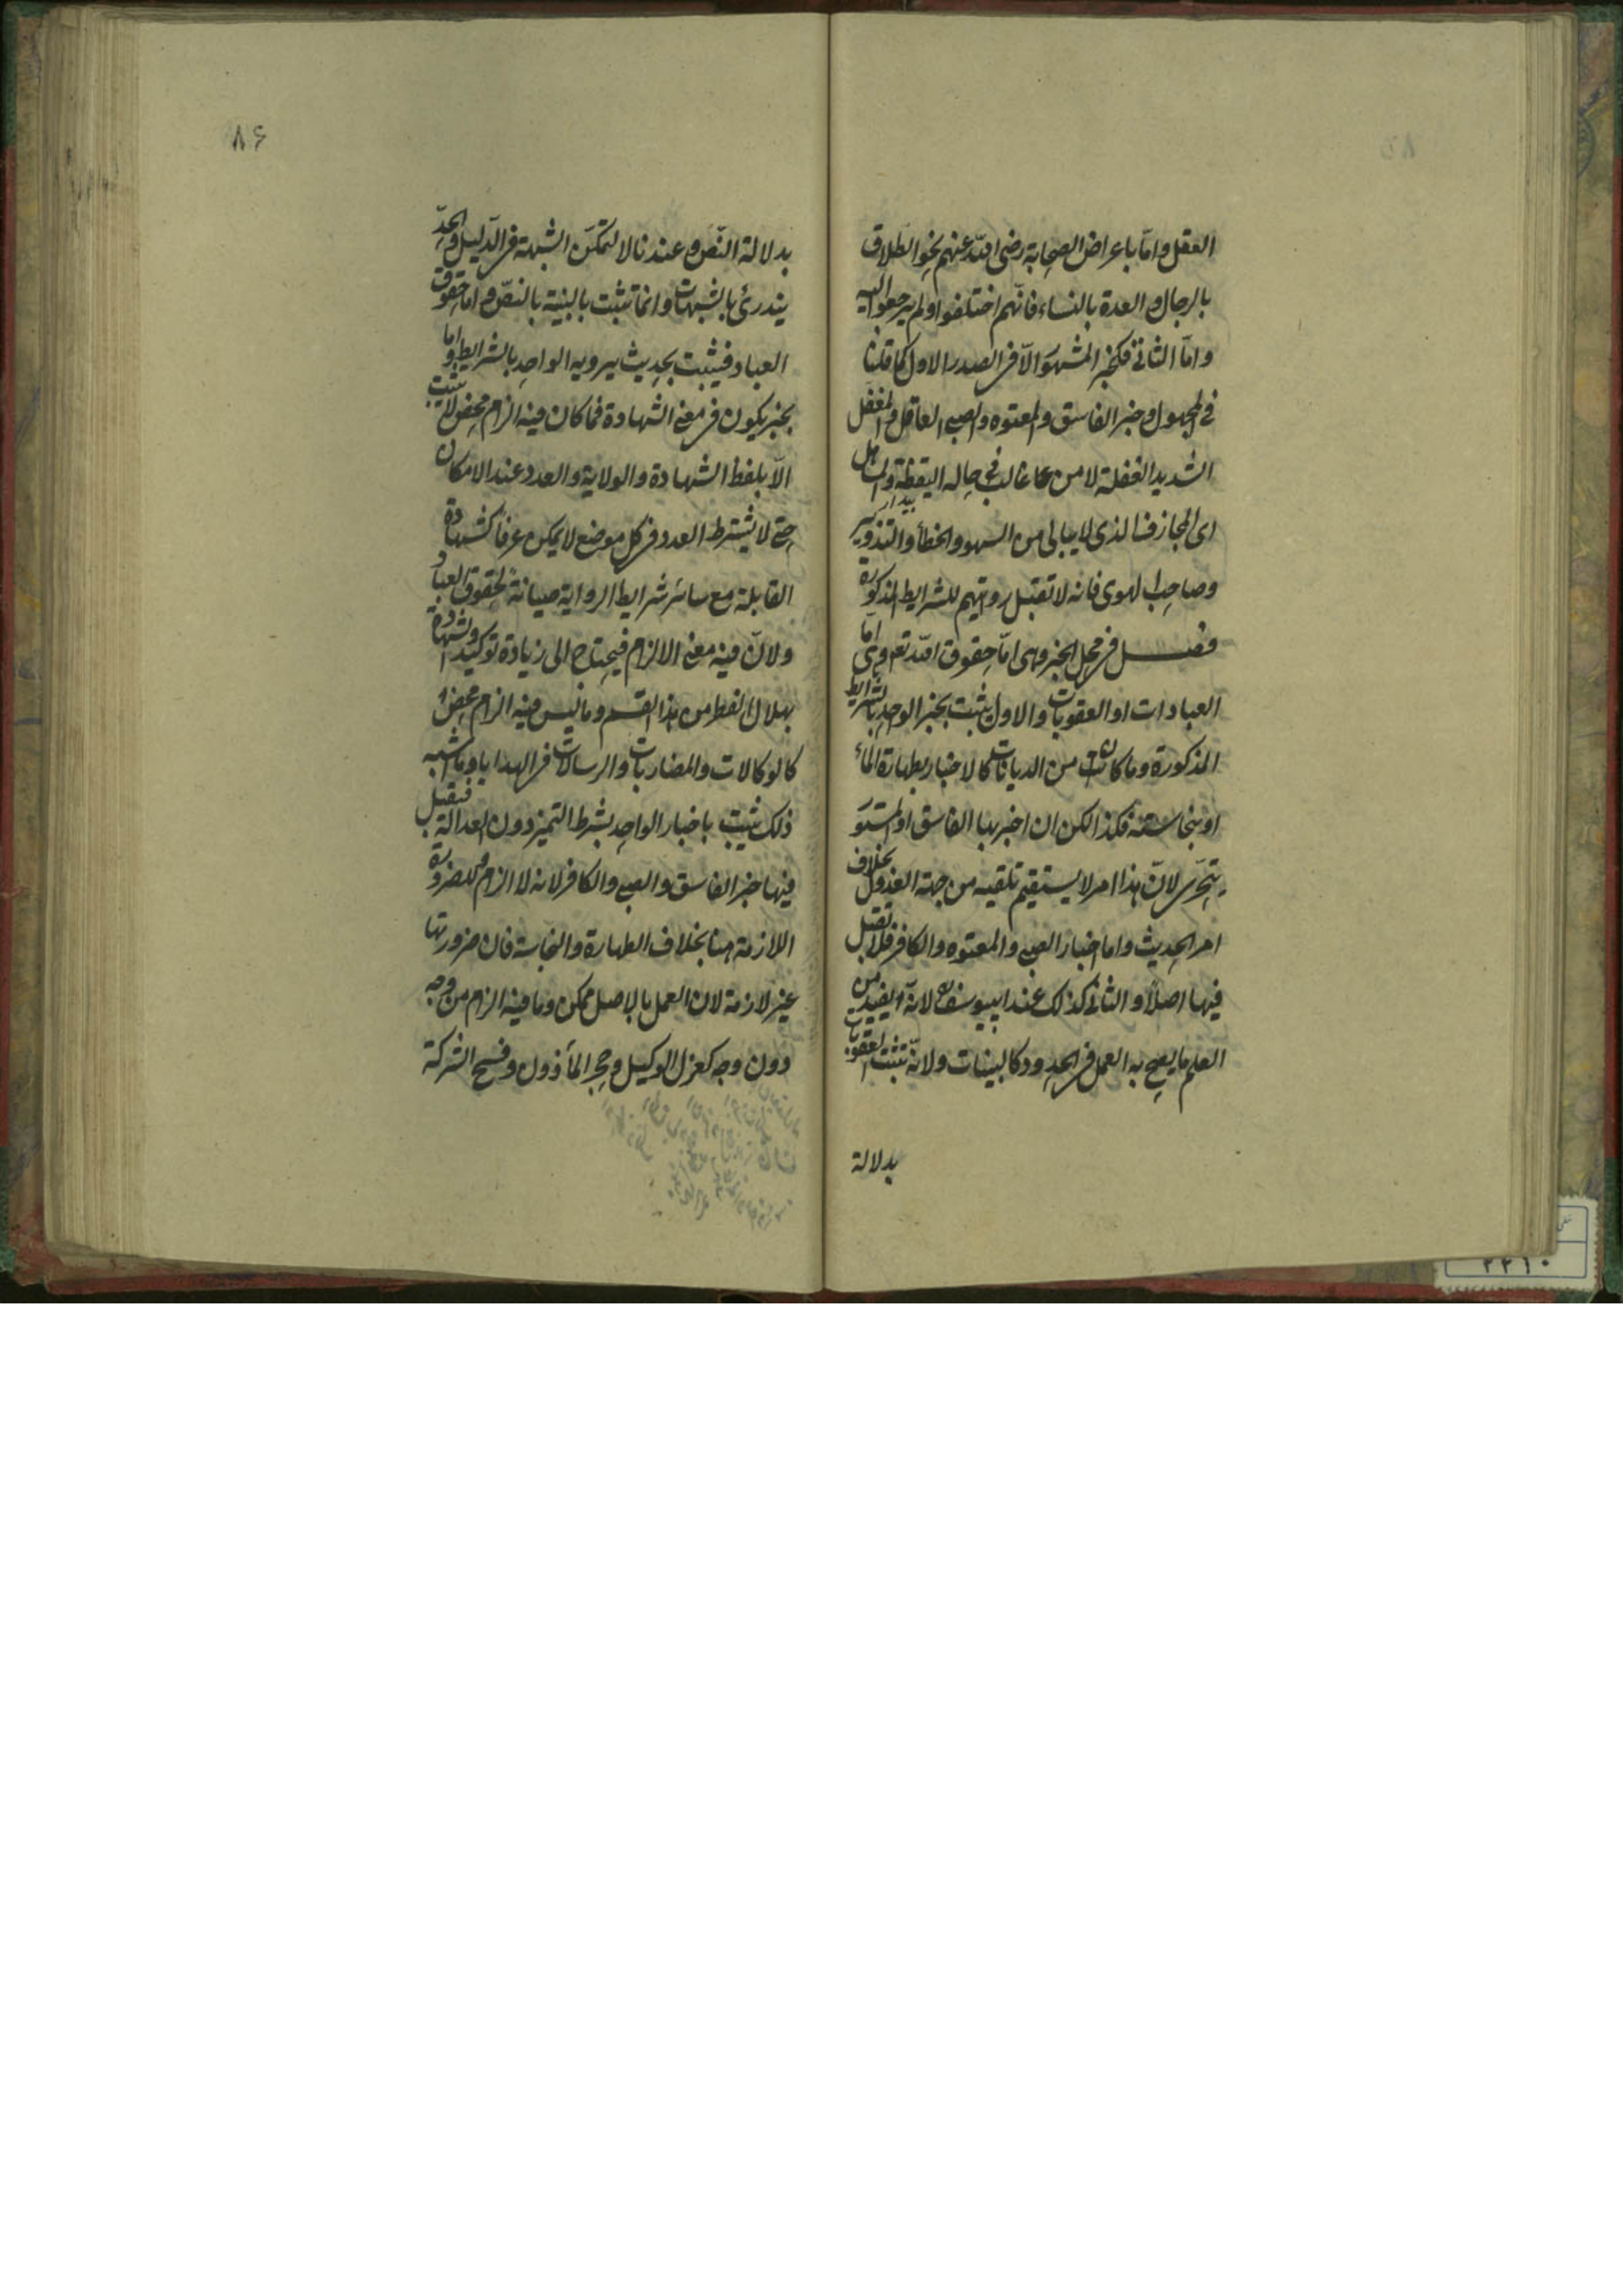 ٨٥
العقل واما باعراض الصحابة رضى الله عنهم نحو الطلاق
بالرجال والعدة بالنساء فانهم اختلفوا ولم يرجعوا اليه
واما الثانى فكخبر المشهور الا فى الصدر الاول كما قلنا
فى المجهول وخبر الفاسق والمعتوه والصبى العاقل والمغفل
الشديد الغفلة لا من غالب حاله اليقظة والمساهل
اى المجازف الذى لا يبالى من السهو والخطأ والتزوير
وصاحب الهوى فانه لا تقبل روايتهم للشرايط المذكورة
فصل فى محل الخبر وهى اما حقوق الله تعالى وهى اما
العبادات او العقوبات والاول يثبت بخبر الواحد بالشرايط
المذكورة وما كان من الديانات كالاخبار بطهارة الماء
او بنجاسته فكذا لكن ان اخبر بها الفاسق او المستور
يتحرى لان هذا امر لا يستقيم تلقيه من جهة العدول بخلاف
امر الحديث واما اخبار الصبى والمعتوه والكافر فلا تقبل
فيها اصلا والثانى كذلك عند ابى يوسف لانه يفيد من
العلم ما يصح به العمل فى الحدود كالبينات ولانه تثبت العقوبات
بدلالة
٨۶
بدلالة النص وعندنا لا لتمكن الشبهة فى الدليل والحد
يندرئ بالشبهات وانما تثبت بالبينة بالنص واما حقوق
العباد فيثبت بحديث يرويه الواحد بالشرايط واما
بخبر يكون فى معنى الشهادة فما كان فيه الزام محض لا يثبت
الا بلفظ الشهادة والولاية والعدد عند الامكان
حتى لا يشترط العدد فى كل موضع لا يمكن عرفا كشهادة
القابلة مع سائر شرايط الرواية صيانة لحقوق العباد
ولان فيه معنى الالزام فيحتاج الى زيادة توكيد والشهادة
بهلال الفطر من هذا القسم وما ليس فيه الزام محض
كالوكالات والمضاربات والرسالات فى الهدايا وما اشبه
ذلك يثبت باخبار الواحد بشرط التميز دون العدالة فتقبل
فيها خبر الفاسق والصبى والكافر لانه لا الزام وللضرورة
اللازمة هنا بخلاف الطهارة والنجاسة فان ضرورتها
غير لازمة لان العمل بالاصل ممكن وما فيه الزام من وجه
دون وجه كعزل الوكيل وحجر المأذون وفسخ الشركة